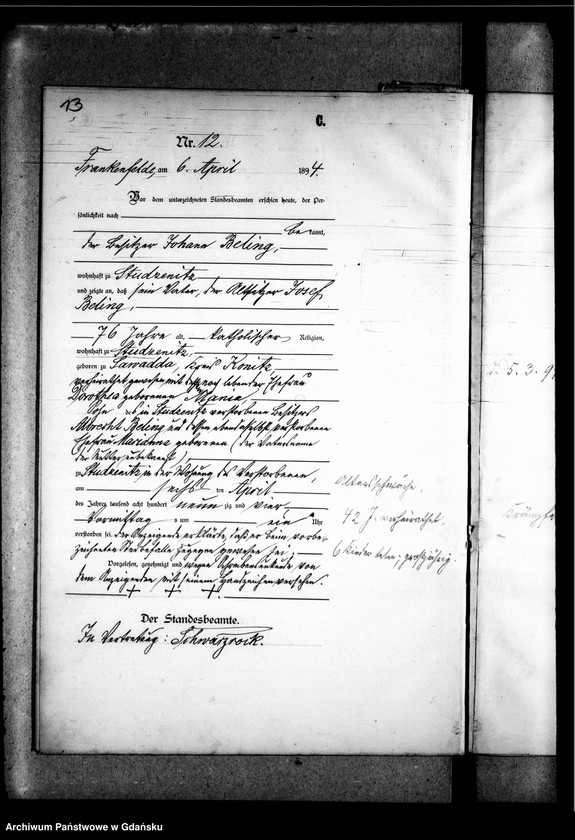 13
C.
Nr. 12.
Frankenfelde, am 6. April 1894.
Vor dem unterzeichneten Standesbeamten erschien heute, der Per-
sönlichkeit nach
be kannt,
der Besitzer Johann Beling,
wohnhaft zu Studzenitz
und zeigte an, daß sein Vater, der Altsitzer Josef
Beling,
76 Jahre alt, katholischer Religion,
wohnhaft zu Studzenitz,
geboren zu Zawadda, Kreis Konitz,
verheirathet gewesen mit der noch lebenden Ehefrau
Dorothea geborenen
Sohn des in Studzenitz verstorbenen Besitzers
Albrecht Beling und dessen ebendaselbst verstorbenen
Ehefrau Marianna geborenen (der Vatersname
der Mutter unbekannt)
zu Studzenitz, in der Wohnung des Verstorbenen,
am sechsten April
des Jahres tausend acht hundert neun zig und vier
Vormittag s um ein Uhr
verstorben sei. Der Anzeigende erklärte, daß er beim vorbe-
zeichneten Sterbefalle zugegen gewesen sei;
Vorgelesen, genehmigt und wegen Schreibensunkunde von
dem Anzeigenden mit seinem Handzeichen versehen.
+ + +
Der Standesbeamte.
In Vertretung: Schwarzrock.
Altersschwäche.
42 J. verheirathet.
6 Kinder leben; großjährig.
5. 3. 9
Krämpfe
Archiwum Państwowe w Gdańsku